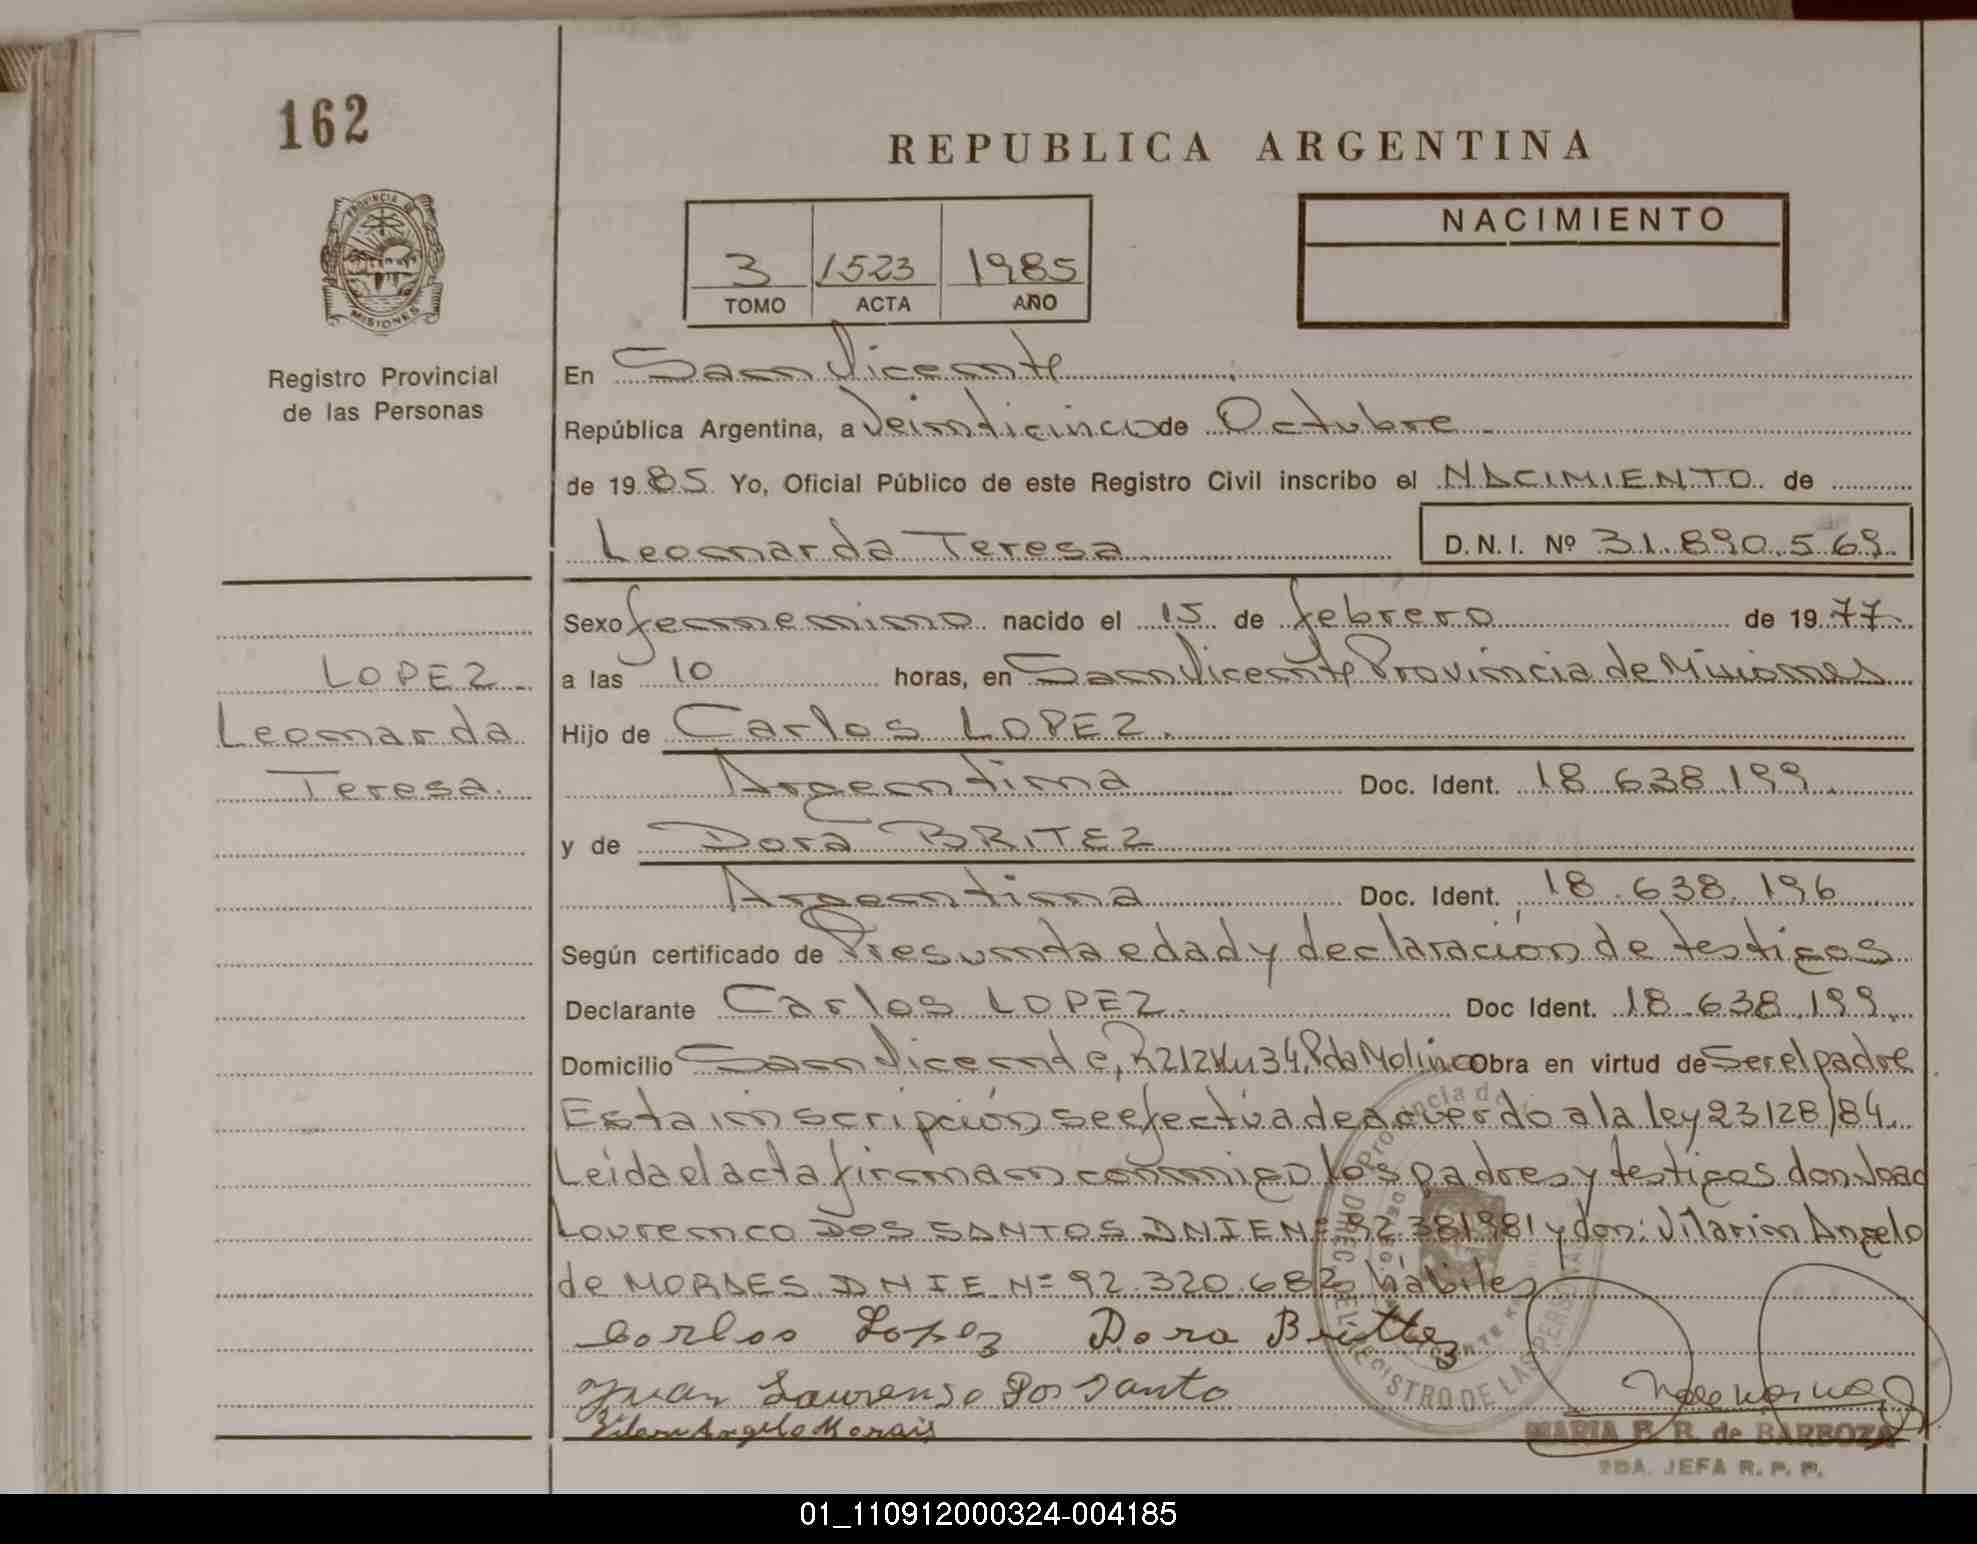 162
REPUBLICA ARGENTINA
PROVINCIA DE
MISIONES
Registro Provincial
de las Personas
3 1523 1985
TOMO ACTA AÑO
NACIMIENTO
En San Vicente
República Argentina, a Veinticinco de Octubre
de 1985 Yo, Oficial Público de este Registro Civil inscribo el NACIMIENTO de
Leonarda Teresa D.N.I. Nº 31.890.569
LOPEZ
Leonarda
Teresa.
Sexo femenino nacido el 15 de febrero de 1977
a las 10 horas, en San Vicente Provincia de Misiones
Hijo de Carlos LOPEZ.
Argentina Doc. Ident. 18.638.199.
y de Dora BRITEZ
Argentina Doc. Ident. 18.638.196
Según certificado de Presunta edad y declaración de testigos
Declarante Carlos LOPEZ. Doc Ident. 18.638.199.
Domicilio San Vicente, R212Km34, Pda Molino Obra en virtud de Ser el padre
Esta inscripción se efectúa de acuerdo a la ley 23128/84.
Leída el acta firman conmigo los padres y testigos don Joao
Lourenco DOS SANTOS DNIE Nº 92381981 y don: Vilarin Angelo
de MORAES DNIE Nº 92.320.682 hábiles
Carlos Lopez Dora Brittez
Juan Laurenso Dos Santo
Vilari Angelo Morais
MARIA B. R. de BARBOZA
2DA. JEFA R. P. P.
01_110912000324-004185